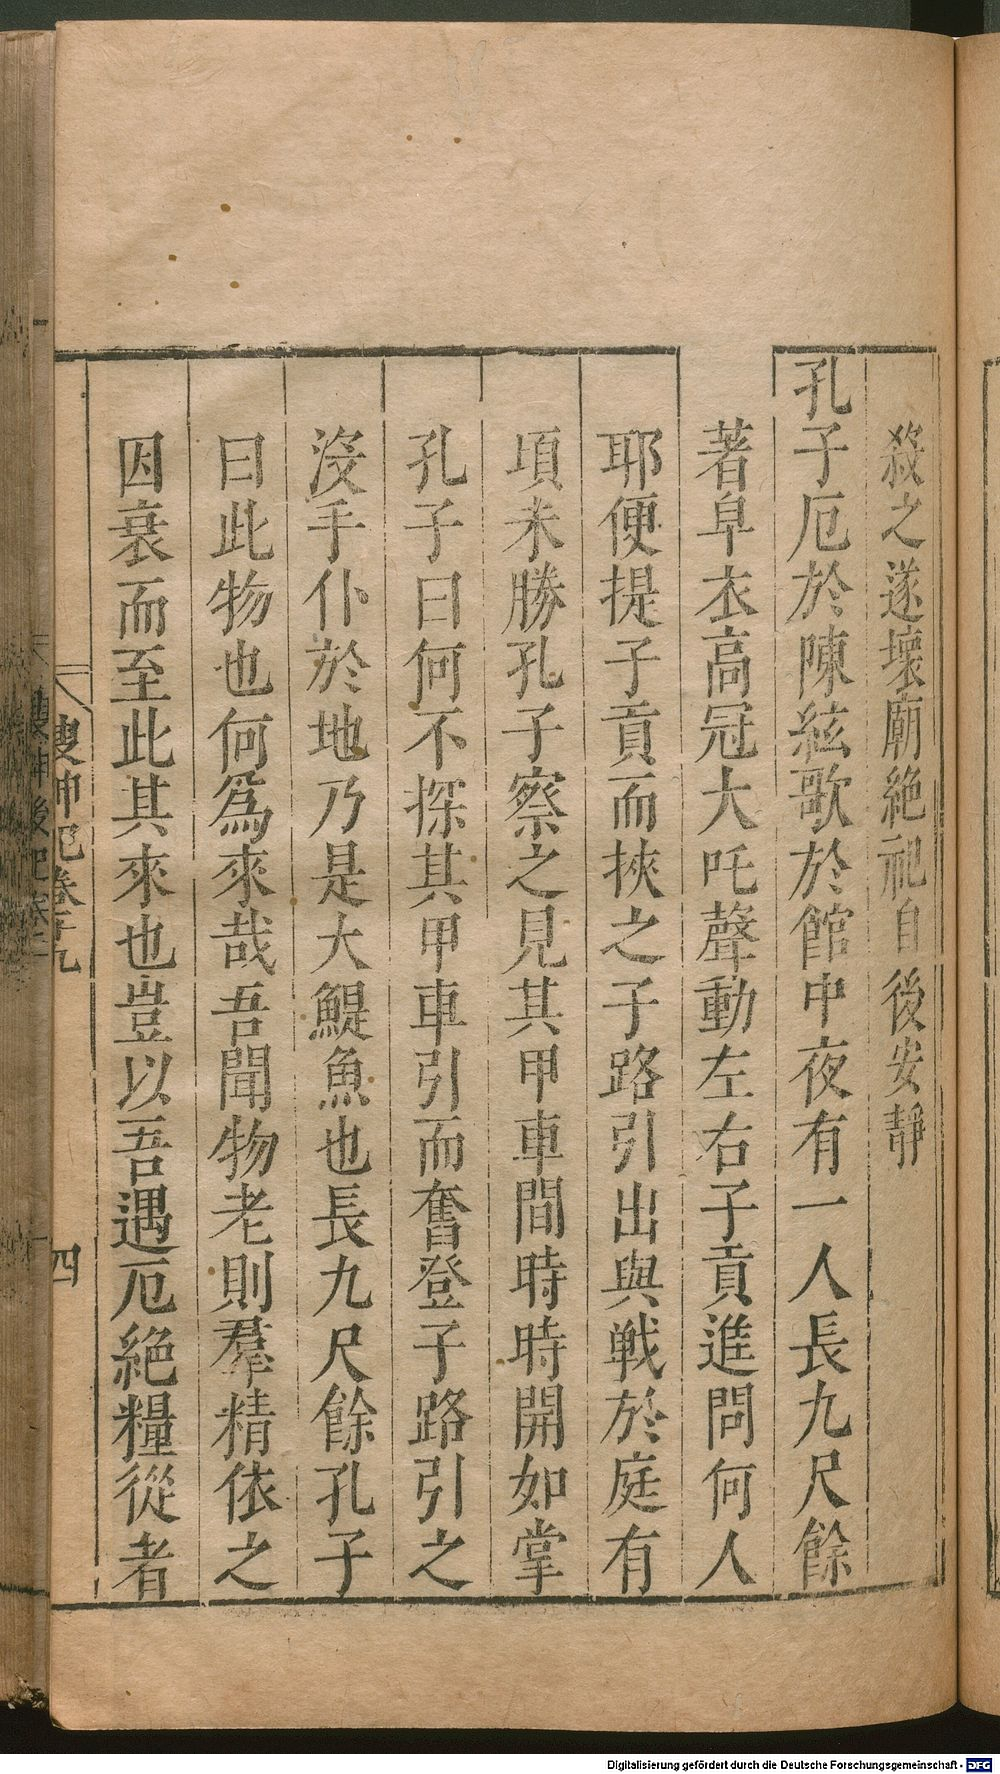 殺之遂壞廟絶祀自後安靜
孔子厄於陳絃歌於館中夜有一人長九尺餘
著皁衣高冠大吒聲動左右子貢進問何人
耶便提子貢而挾之子路引出與戦於庭有
項未勝孔子察之見其甲車間時時開如掌
孔子曰何不探其甲車引而奮登子路引之
沒手仆於地乃是大鯷魚也長九尺餘孔子
曰此物也何爲來哉吾聞物老則羣精依之
因衰而至此其來也豈以吾遇厄絶糧從者
搜神記卷十九
四
Digitalisierung gefördert durch die Deutsche Forschungsgemeinschaft - DFG